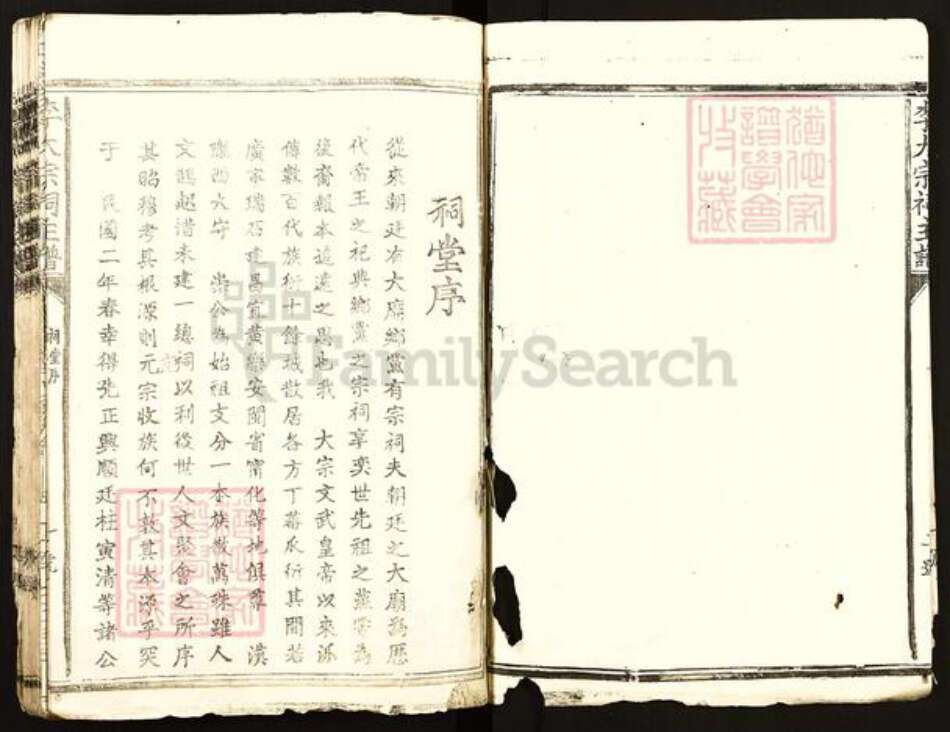 李大宗祠主譜
祠堂序
從來朝廷有大廟鄉黨有宗祠夫朝廷之大廟為歷
代帝王之祀典鄉黨之宗祠享奕世先祖之蒸嘗為
後裔報本追遠之思也我 大宗文武皇帝以來派
傳數百代族衍十餘城散居各方丁蕃瓜衍其間若
廣東瑞石建昌宜黃樂安閩省甯化等地俱尊 漢
西六字 公為始祖支分一本族散萬殊雖人
文 起惜未建一總祠以利後世人文聚會之所序
其昭穆考其根源則元宗收族何不敦其本源乎突
于 民國二年春幸得先正興順廷柱寅清等諸公
李大宗祠主譜
祠堂序
譜學會
收藏
FamilySearch